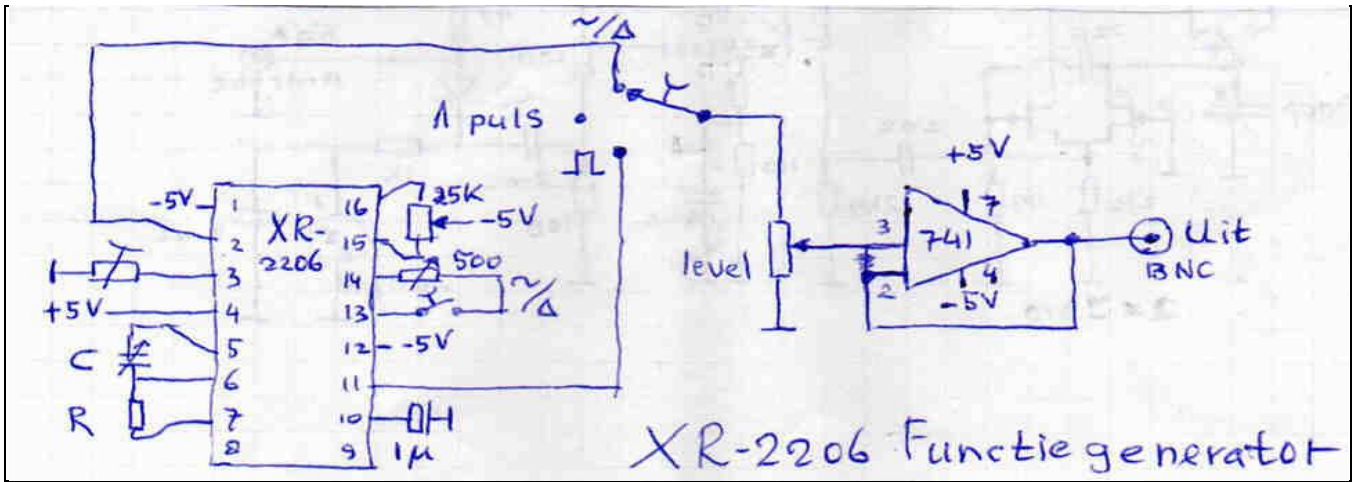 ~/Δ
Λ puls
-5V
1
2
3
4
5
6
7
8
XR-
2206
16
15
14
13
12
11
10
9
25K
-5V
500
~/Δ
+5V
-5V
C
R
1μ
level
+5V
3
2
741
7
4
-5V
Uit
BNC
XR-2206 Functiegenerator